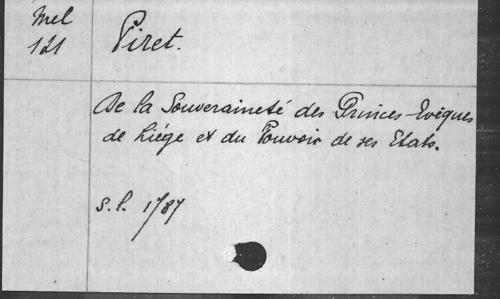 Mel
121
Piret.
De la Souveraineté des Princes-Evêques
de Liége et du Pouvoir de ses Etats.
s.l. 1787